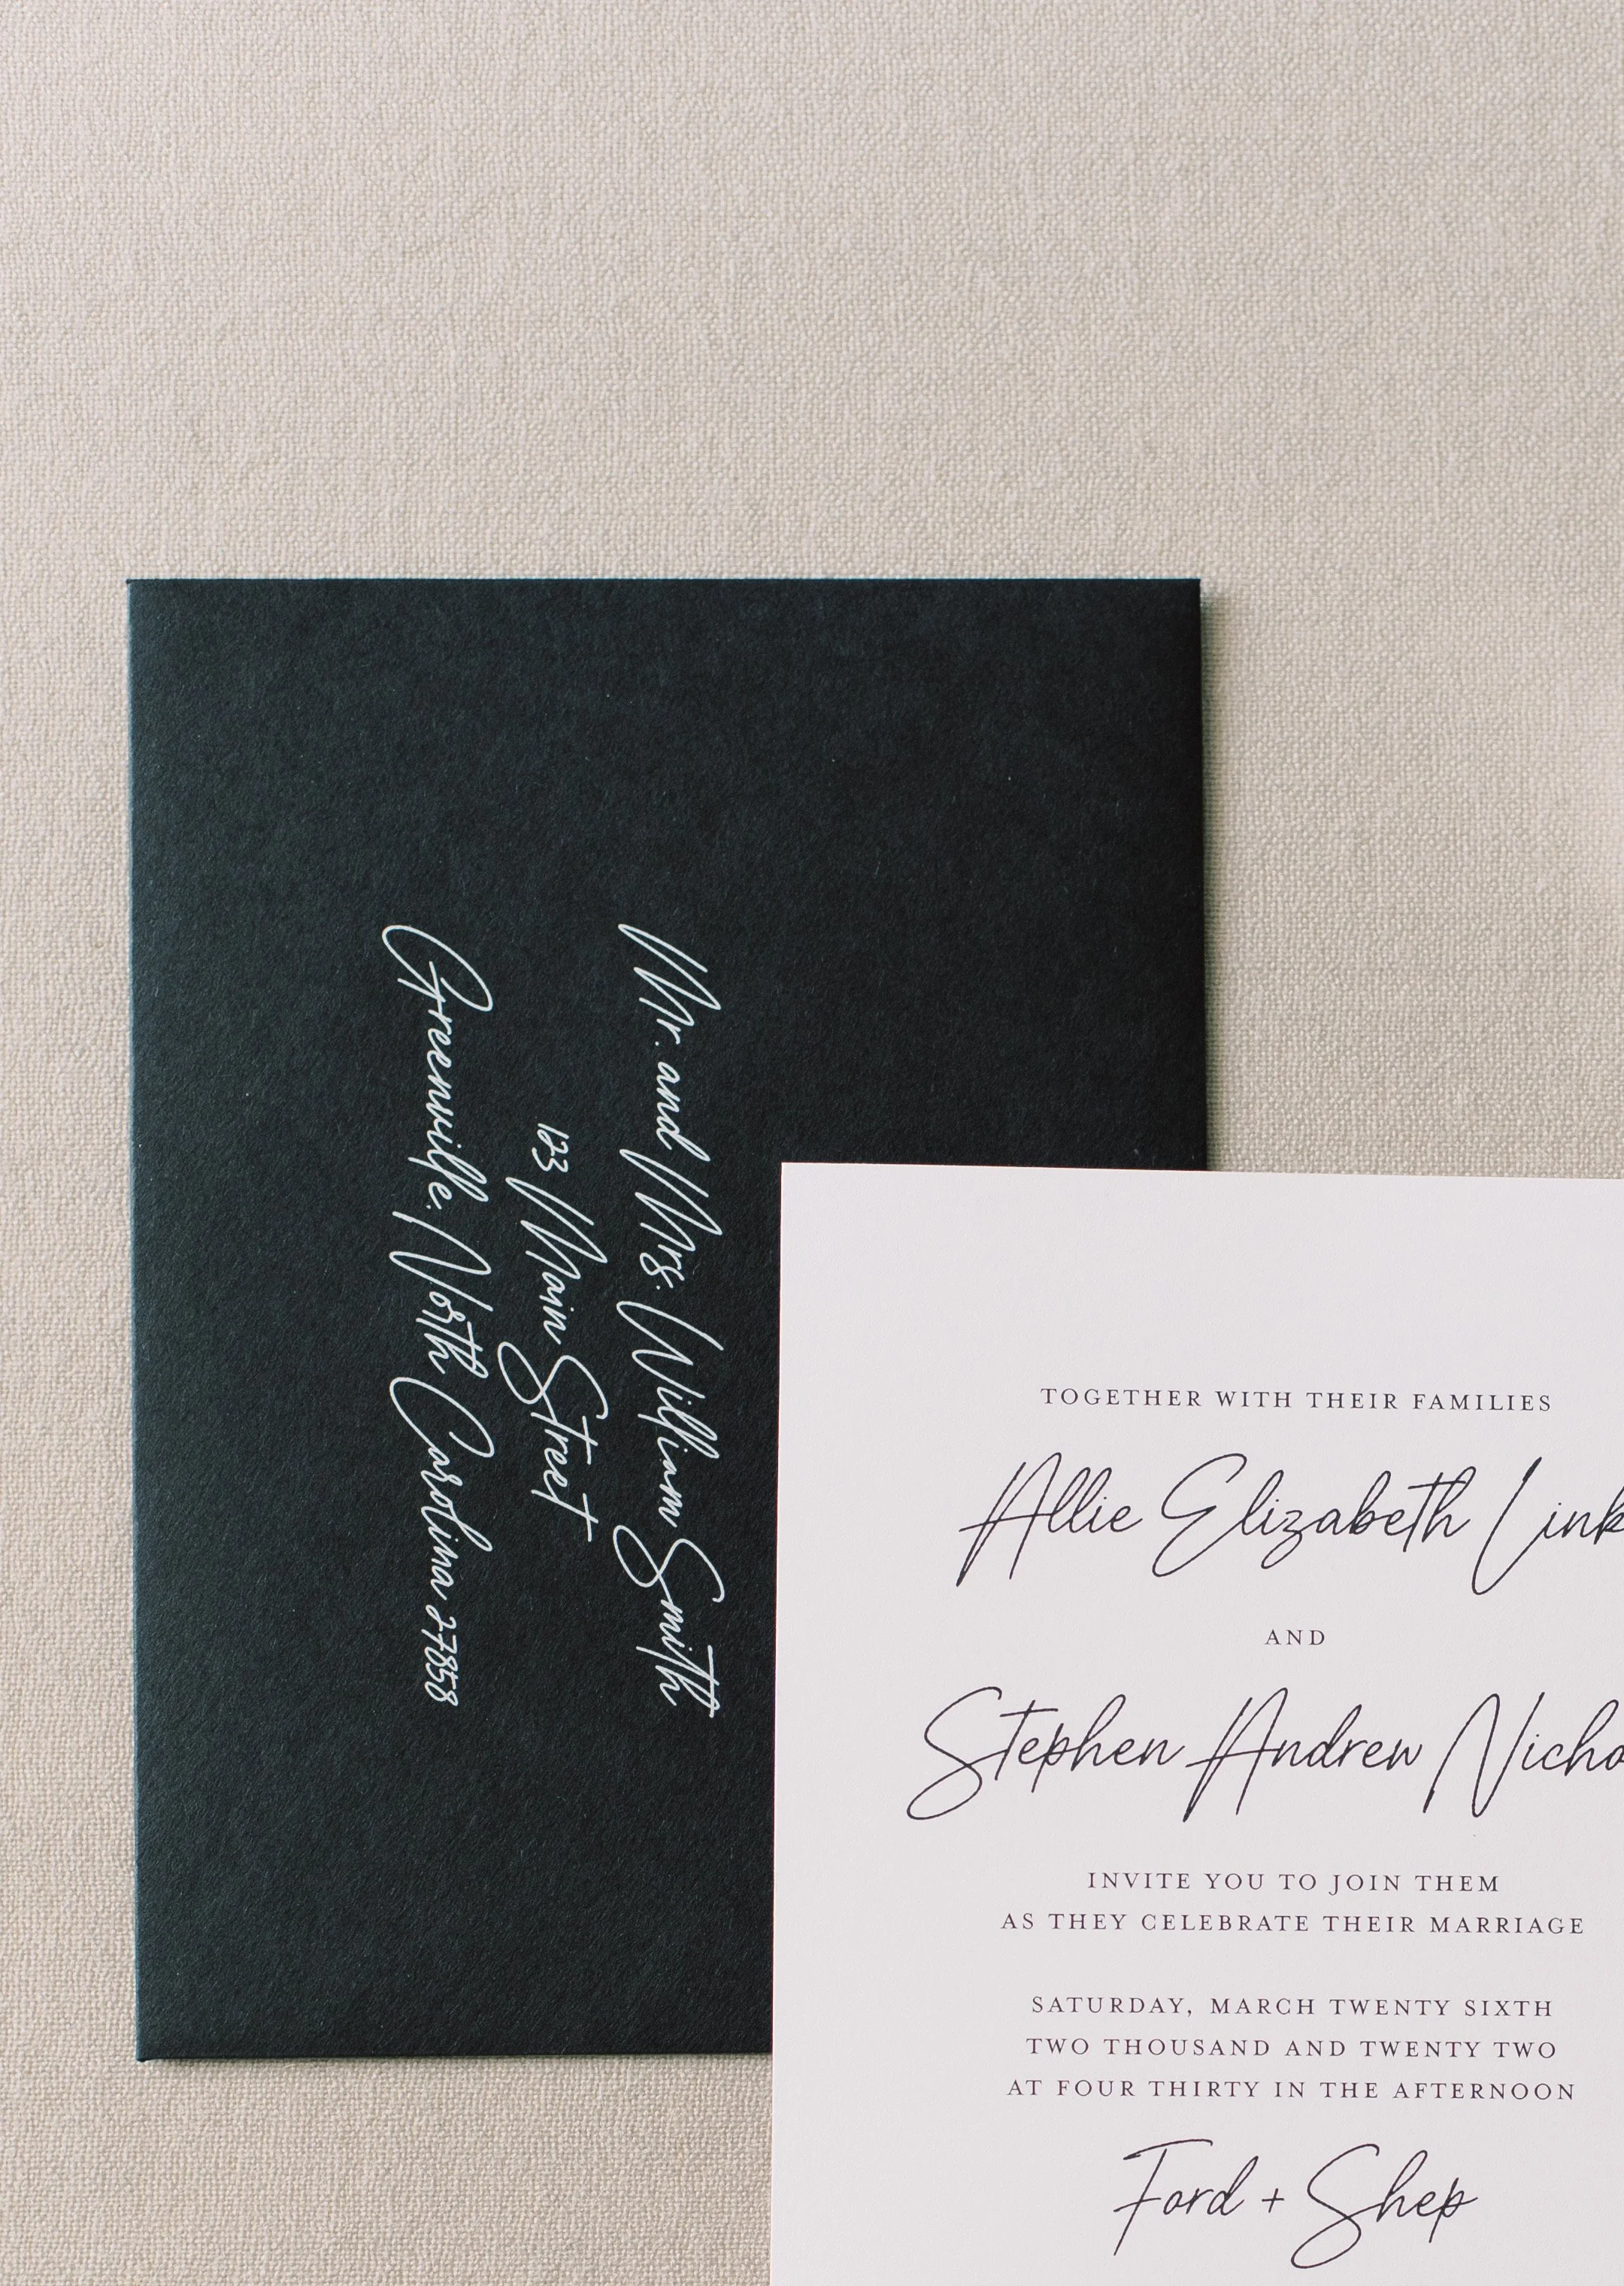 Mr. and Mrs. William Smith
123 Main Street
Greenville, North Carolina 27858
TOGETHER WITH THEIR FAMILIES
Allie Elizabeth Link
AND
Stephen Andrew
INVITE YOU TO JOIN THEM
AS THEY CELEBRATE THEIR MARRIAGE
SATURDAY, MARCH TWENTY SIXTH
TWO THOUSAND AND TWENTY TWO
AT FOUR THIRTY IN THE AFTERNOON
Ford + Shep